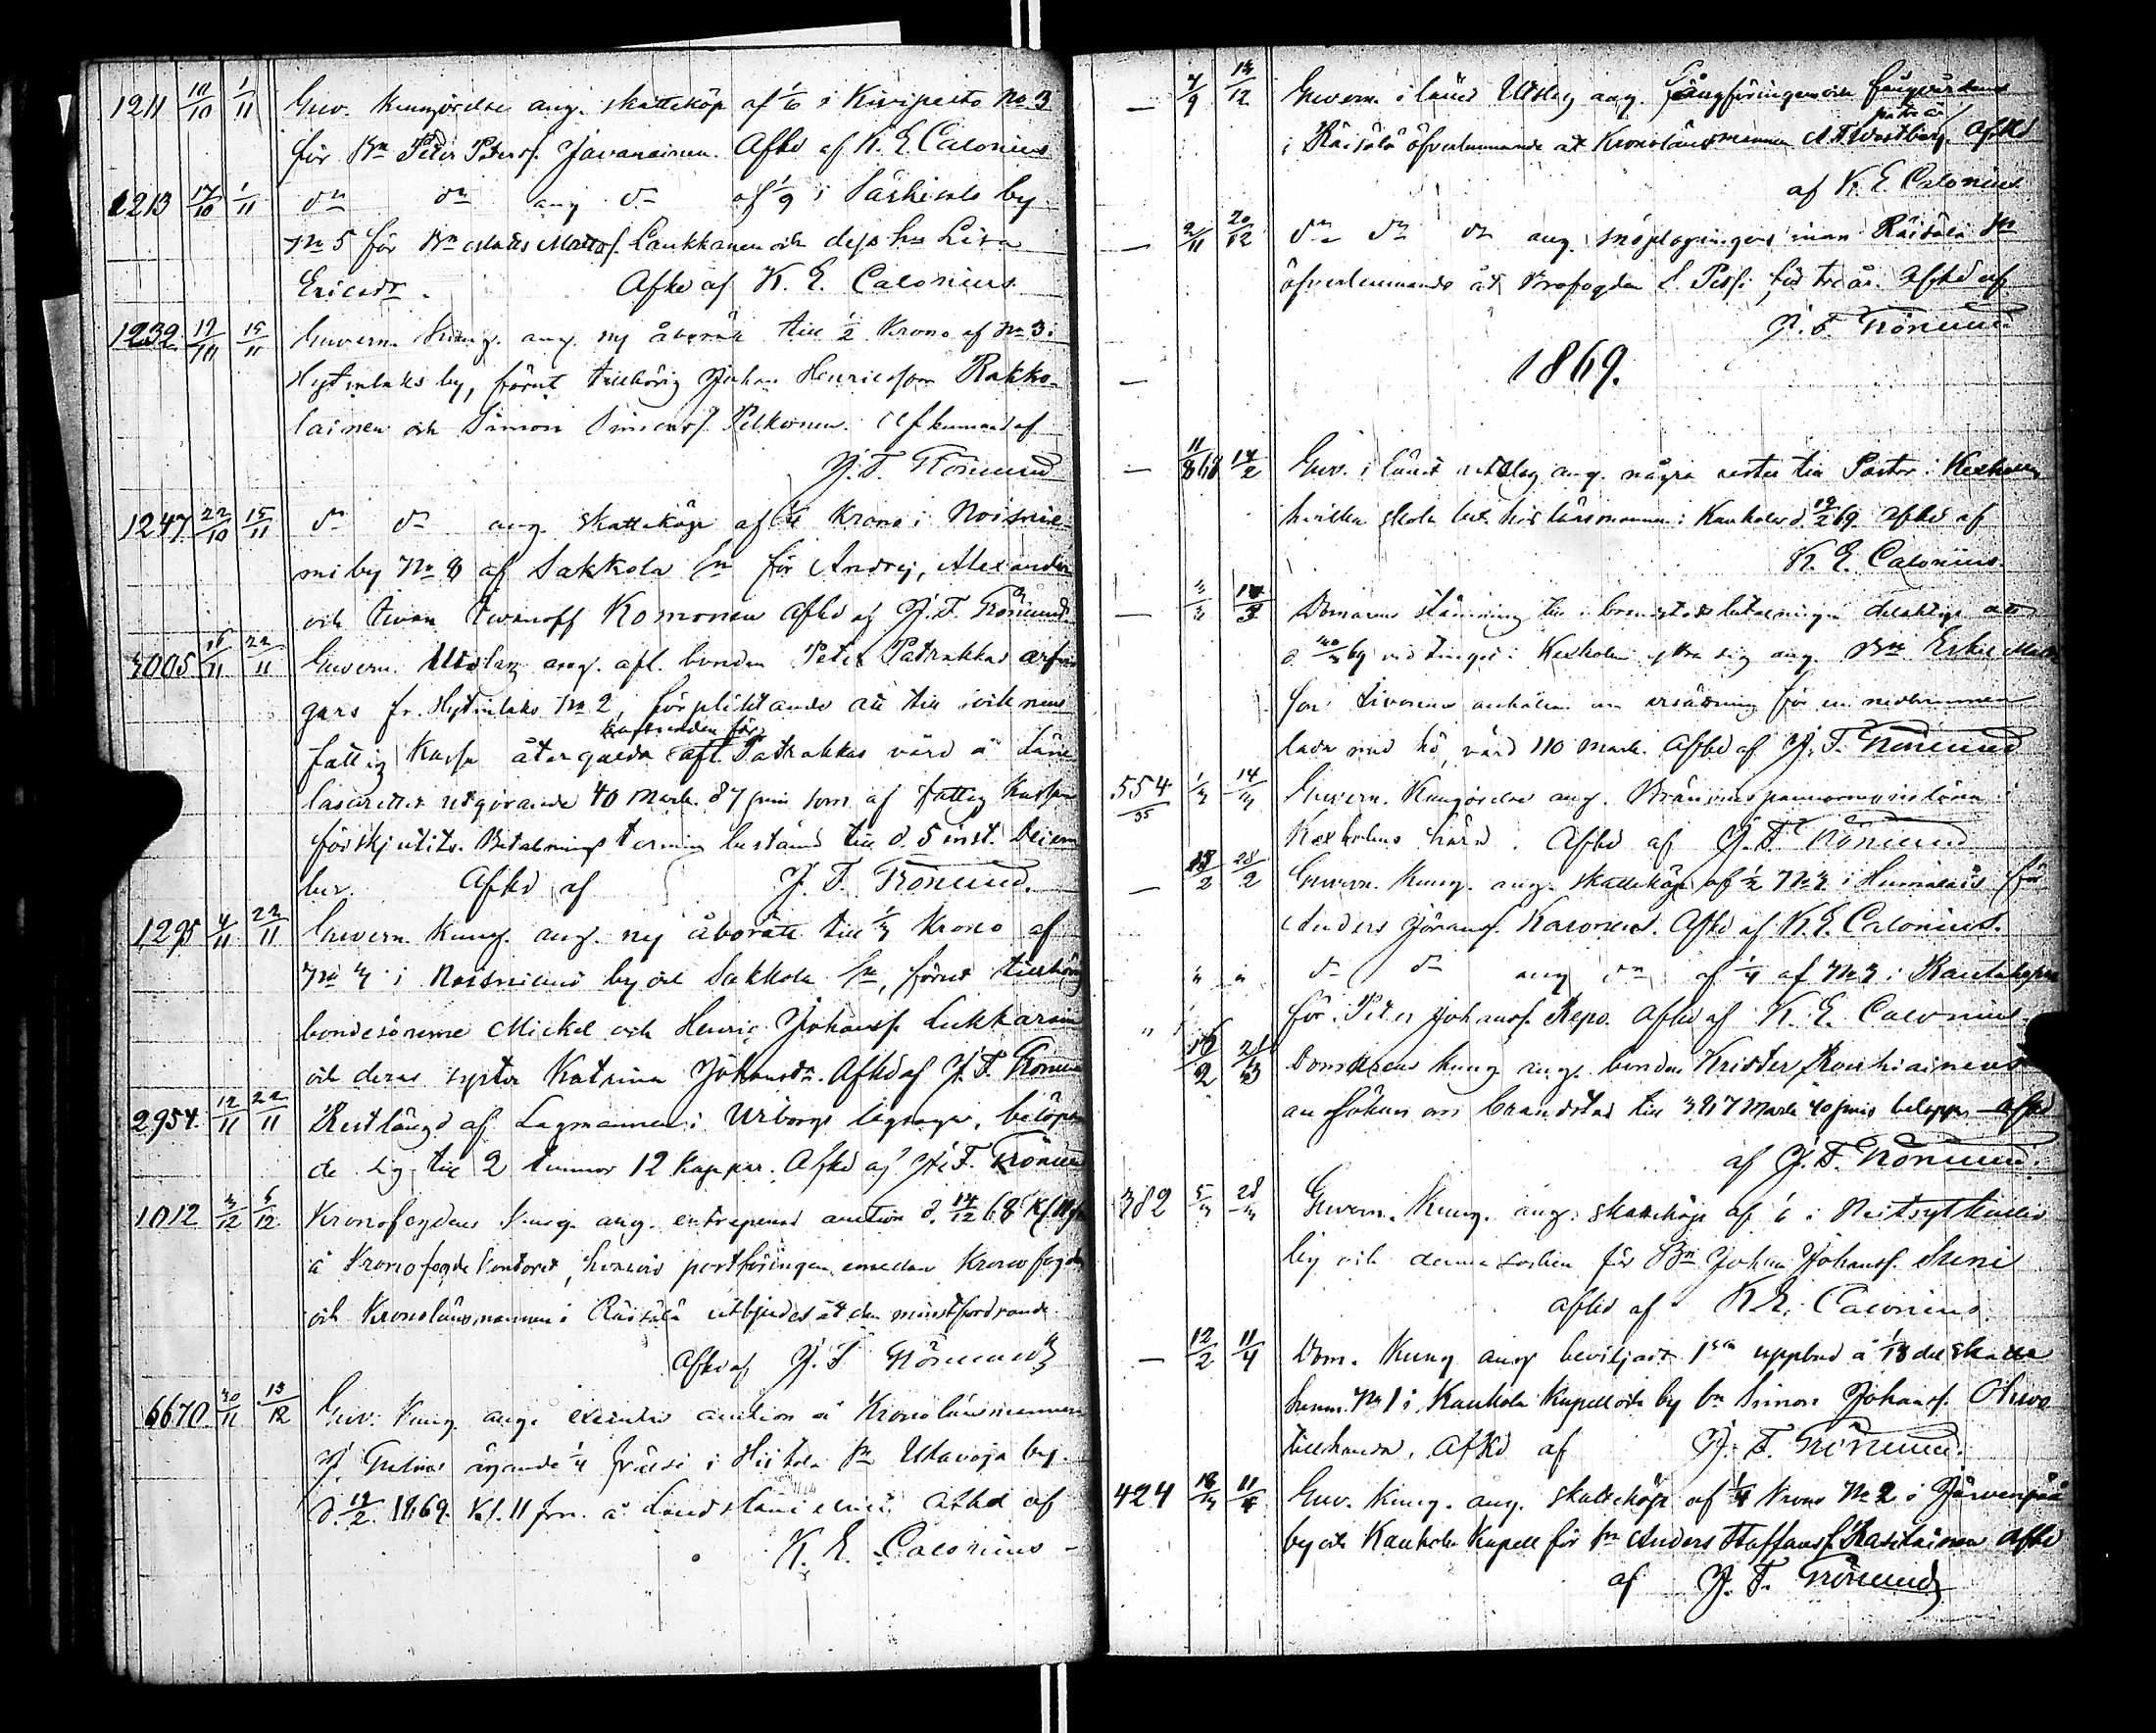 1211 10/10 1/11 Guv. Kungörelse ang. skatteköp af 1/6 i Kiviperto No 3
för Bn Peter Peterss. Javanainen. Afkd af K. E. Calonius
1213 17/10 1/11 dn dn ang dn af 1/9 i Särkisalo by
No 5 för Bn Matts Mattss. Laukkanen och dess hu Lisa
Ericsdr. Afkd af K. E. Calonius
1239 19/10 15/11 Guvern. Kung. ang. ny åborätt till 1/2 Krono af No 3
Hytinlaks by, förut tillhörig Johan Henricsson Rakko-
lainen och Simon Simonss. Pelkonen. Afkunnad af
J. F. Grönlund
1247 22/10 15/11 dn dn ang skatteköp af 1/4 Krono i Noisnie-
mi by No 8 af Sakkola sn för Andrej, Alexander
och Iwan Iwanoff Komonen Afkd af J. F. Grönlund.
3005 16/11 22/11 Guvern. Utslag ang. afl. bonden Peter Patrakkas arfvin
gars fr. Hytinlaks No 2, förpliktande att till socknens
kostnaden för
fattig Kassa återgälda afl. Patrakkas vård å Läns
lasarettet utgörande 40 Mark 87 pni som af fattig Kassan
förskjutits. Betalnings termin bestämd till d. 5 inst. Decem
ber. Afkd af J. F. Grönlund.
1295 4/11 22/11 Guvern. Kung. ang. ny åborätt till 1/3 Krono af
No 3 i Noisniemi by och Sakkola sn, förut tillhörig
bondesönerne Mickel och Henric Johanss. Lukkarinen
och deras syster Katrina Johansdr. Afkd af J. F. Grönlund
2954. 12/11 22/11 Restlängd af Lagmannen i Wiborgs lagsaga, belöpan
de sig till 2 tunnor 12 Kappar. Afkd af J. F. Grönlund
1012 3/12 5/12 Kronofogdens Kung. ang. entreprenad auction d. 14/12 68
å Kronofogde Kontoret, hvarvid postföringen emellan Kronofogden
och Kronolänsmannen i Räisälä utbjudes åt den minstfordrande
Afkd af J. F. Grönlund
6670 30/11 13/12 Guv. Kung. ang. executiv auction å Kronolänsmannen
J. ägande 1/4 frälse i Hiitola sn Utavoja by
d. 19/2 1869. Kl. 11 fm. å Afkd af
K. E. Calonius
— 7/9 13/12 Guvern. i länet Utslag ang. Fångföringen och fångvården
på tre år
i Räisälä öfverlemnande åt Kronolänsmannen A. F. Westberg. Afkd
af K. E. Calonius
— 2/11 20/12 dn dn dn ang. snöplogningens inom Räisälä sn
öfverlemnande åt Brofogden S. Pessi för tre år. Afkd af
J. F. Grönlund
— 1869.
— 11/8 68 14/2 Guv. i länet utslag ang. några rester till Pastor i Kexholm
hvilka skola bet. hos länsmannen i Kaukola d. 19/2 69 Afkd af
K. E. Calonius
— 14/3 Domarens stämning till i brandstodsbetalningen delaktige att
d. 69 vid tinget i Kexholm yttra sig ang. Bn Eskil
son anhållan om ersättning för en nedbrunnen
lada med hö, värd 110 mark. Afkd af J. F. Grönlund
554/35 1/3 14/3 Guvern. Kungörelse ang. Bränvins i
Kexholms härad. Afkd af J. F. Grönlund
— 18/2 28/2 Guvern. Kung. ang. skatteköp af 1/2 No 3 i Humalais för
Anders Jöranss. Karonen. Afkd af K. E. Calonius.
" " dn dn ang dn af 1/4 af No 3 i Rautahynn
för Peter Johanss. Repo. Afkd af K. E. Calonius
" 16/2 21/3 Domarens kung ang. bonden Krister Roukiainens
ansökan om brandstod till 3917 Mark 40 pnis belopp — Afkd
af J. F. Grönlund.
382 5/3 28/3 Guvern. Kung. ang. skatteköp af 1/6 i Neitsytkallio
by och denna socken för Bn Johan Johanss. Suni
Afkd af K. E. Calonius
— 12/2 11/4 Dom. Kung ang beviljadt 1sta uppbud å 1/18 del skatte
hemm. No 1 i Kaukola Kapell och by bn Simon Johanss.
tillhanda. Afkd af J. F. Grönlund.
424 18/3 11/4 Guv. Kung. ang. skatteköp af 1/4 Krono No 2 i Järvenpää
by och Kaukola Kapell för bn Anders Staffanss. Rastainen Afkd
af J. F. Grönlund